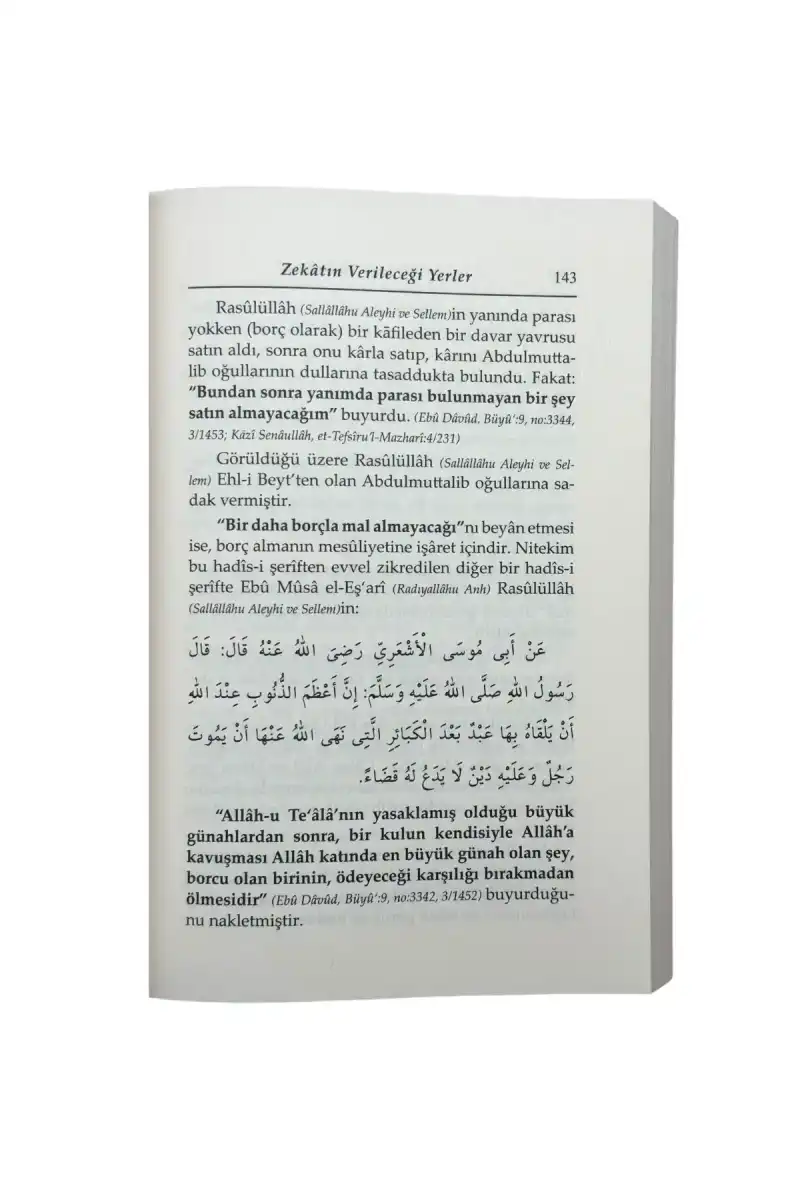 Zekâtın Verileceği Yerler 143
Rasûlüllâh (Sallâllâhu Aleyhi ve Sellem)in yanında parası
yokken (borç olarak) bir kāfileden bir davar yavrusu
satın aldı, sonra onu kârla satıp, kârını Abdulmutta-
lib oğullarının dullarına tasaddukta bulundu. Fakat:
“Bundan sonra yanımda parası bulunmayan bir şey
satın almayacağım” buyurdu. (Ebû Dâvûd, Büyû‘:9, no:3344,
3/1453; Kâzî Senâullâh, et-Tefsîru’l-Mazharî:4/231)
Görüldüğü üzere Rasûlüllâh (Sallâllâhu Aleyhi ve Sel-
lem) Ehl-i Beyt’ten olan Abdulmuttalib oğullarına sa-
dak vermiştir.
“Bir daha borçla mal almayacağı”nı beyân etmesi
ise, borç almanın mesûliyetine işâret içindir. Nitekim
bu hadîs-i şerîften evvel zikredilen diğer bir hadîs-i
şerîfte Ebû Mûsâ el-Eş‘arî (Radıyallâhu Anh) Rasûlüllâh
(Sallâllâhu Aleyhi ve Sellem)in:
عَنْ أَبِي مُوسَى الْأَشْعَرِيِّ رَضِيَ اللهُ عَنْهُ قَالَ: قَالَ
رَسُولُ اللهِ صَلَّى اللهُ عَلَيْهِ وَسَلَّمَ: إِنَّ أَعْظَمَ الذُّنُوبِ عِنْدَ اللهِ
أَنْ يَلْقَاهُ بِهَا عَبْدٌ بَعْدَ الْكَبَائِرِ الَّتِي نَهَى اللهُ عَنْهَا أَنْ يَمُوتَ
رَجُلٌ وَعَلَيْهِ دَيْنٌ لَا يَدَعُ لَهُ قَضَاءً.
“Allâh-u Te‘âlâ’nın yasaklamış olduğu büyük
günahlardan sonra, bir kulun kendisiyle Allâh’a
kavuşması Allâh katında en büyük günah olan şey,
borcu olan birinin, ödeyeceği karşılığı bırakmadan
ölmesidir” (Ebû Dâvûd, Büyû‘:9, no:3342, 3/1452) buyurduğu-
nu nakletmiştir.